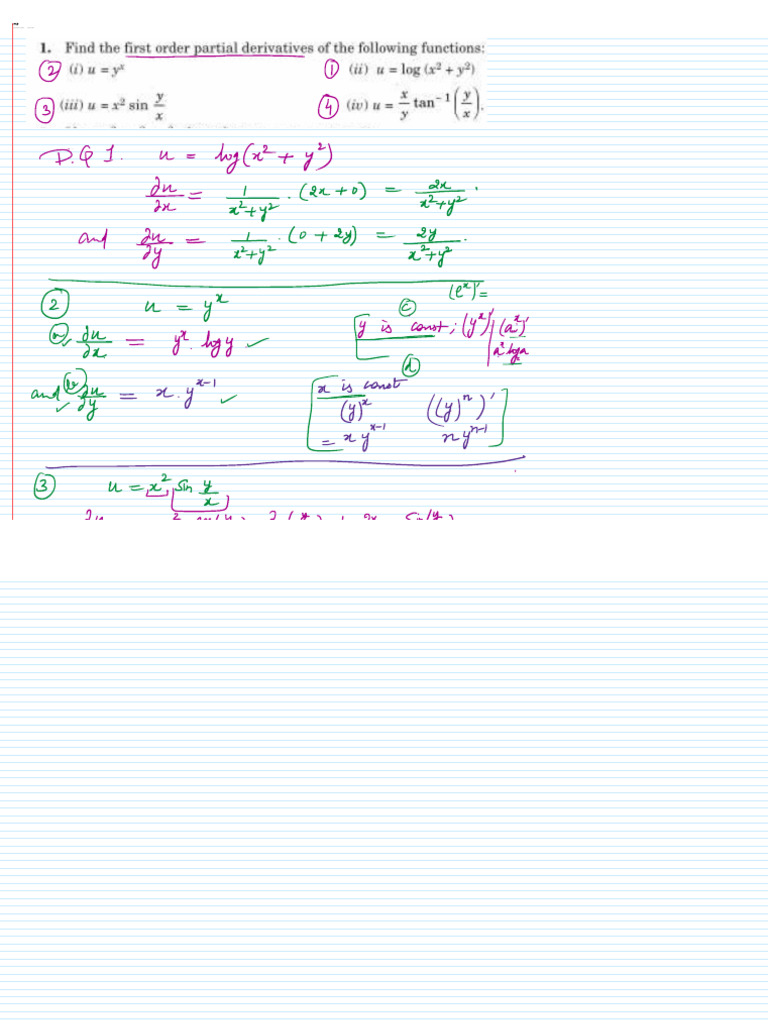 1. Find the first order partial derivatives of the following functions:
② (i) u = yˣ ① (ii) u = log (x² + y²)
③ (iii) u = x² sin y/x ④ (iv) u = x/y tan⁻¹(y/x).
D.Q 1. u = log(x² + y²)
∂u/∂x = 1/(x²+y²) · (2x + 0) = 2x/(x²+y²).
and ∂u/∂y = 1/(x²+y²) · (0 + 2y) = 2y/(x²+y²).
(eˣ)' =
② u = yˣ
(c)
(a) ∂u/∂x = yˣ. log y ✓ [y is const; (yˣ)' | (aˣ)'
aˣ log a
(d)
and (b) ∂u/∂y = x. yˣ⁻¹ ✓ [x is const
(y)ˣ ((y)ⁿ)'
= x yˣ⁻¹ n yⁿ⁻¹]
③ u = x² sin y/x